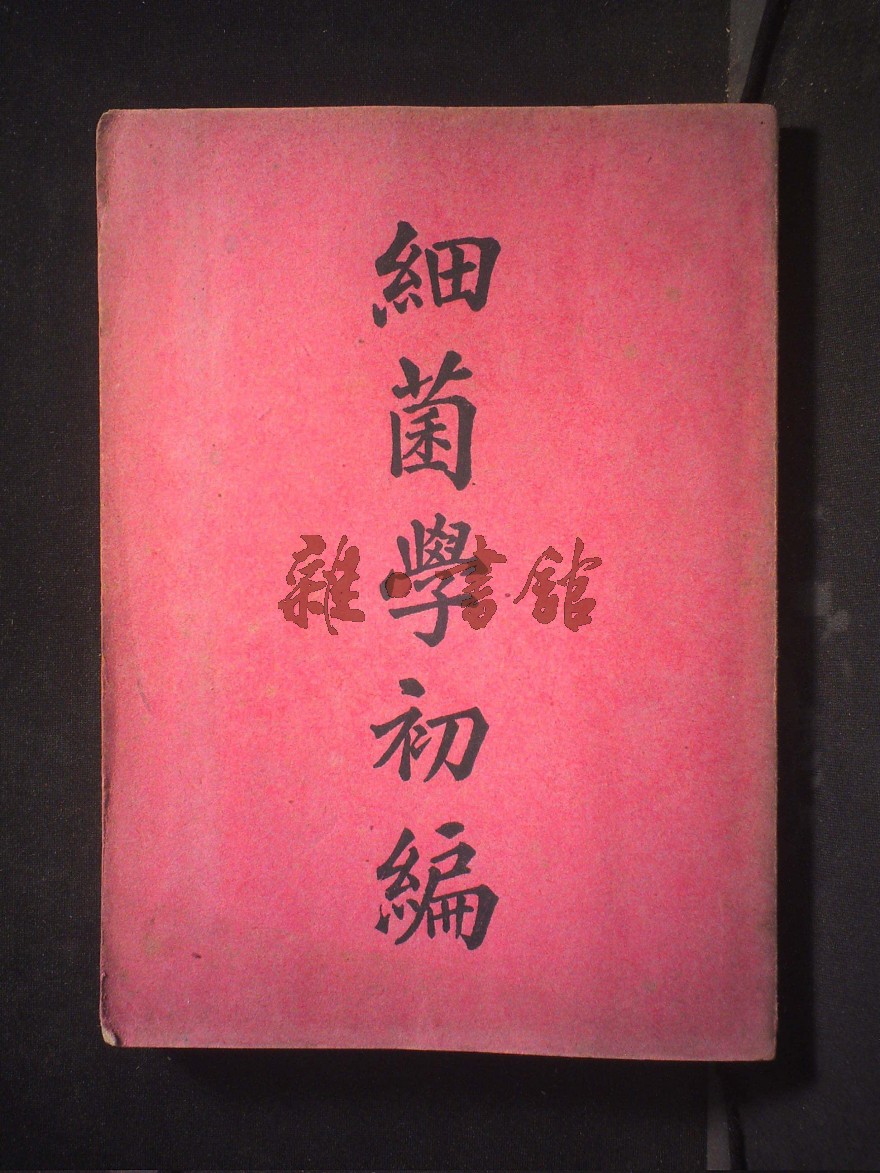 細菌學初編
雜·書館